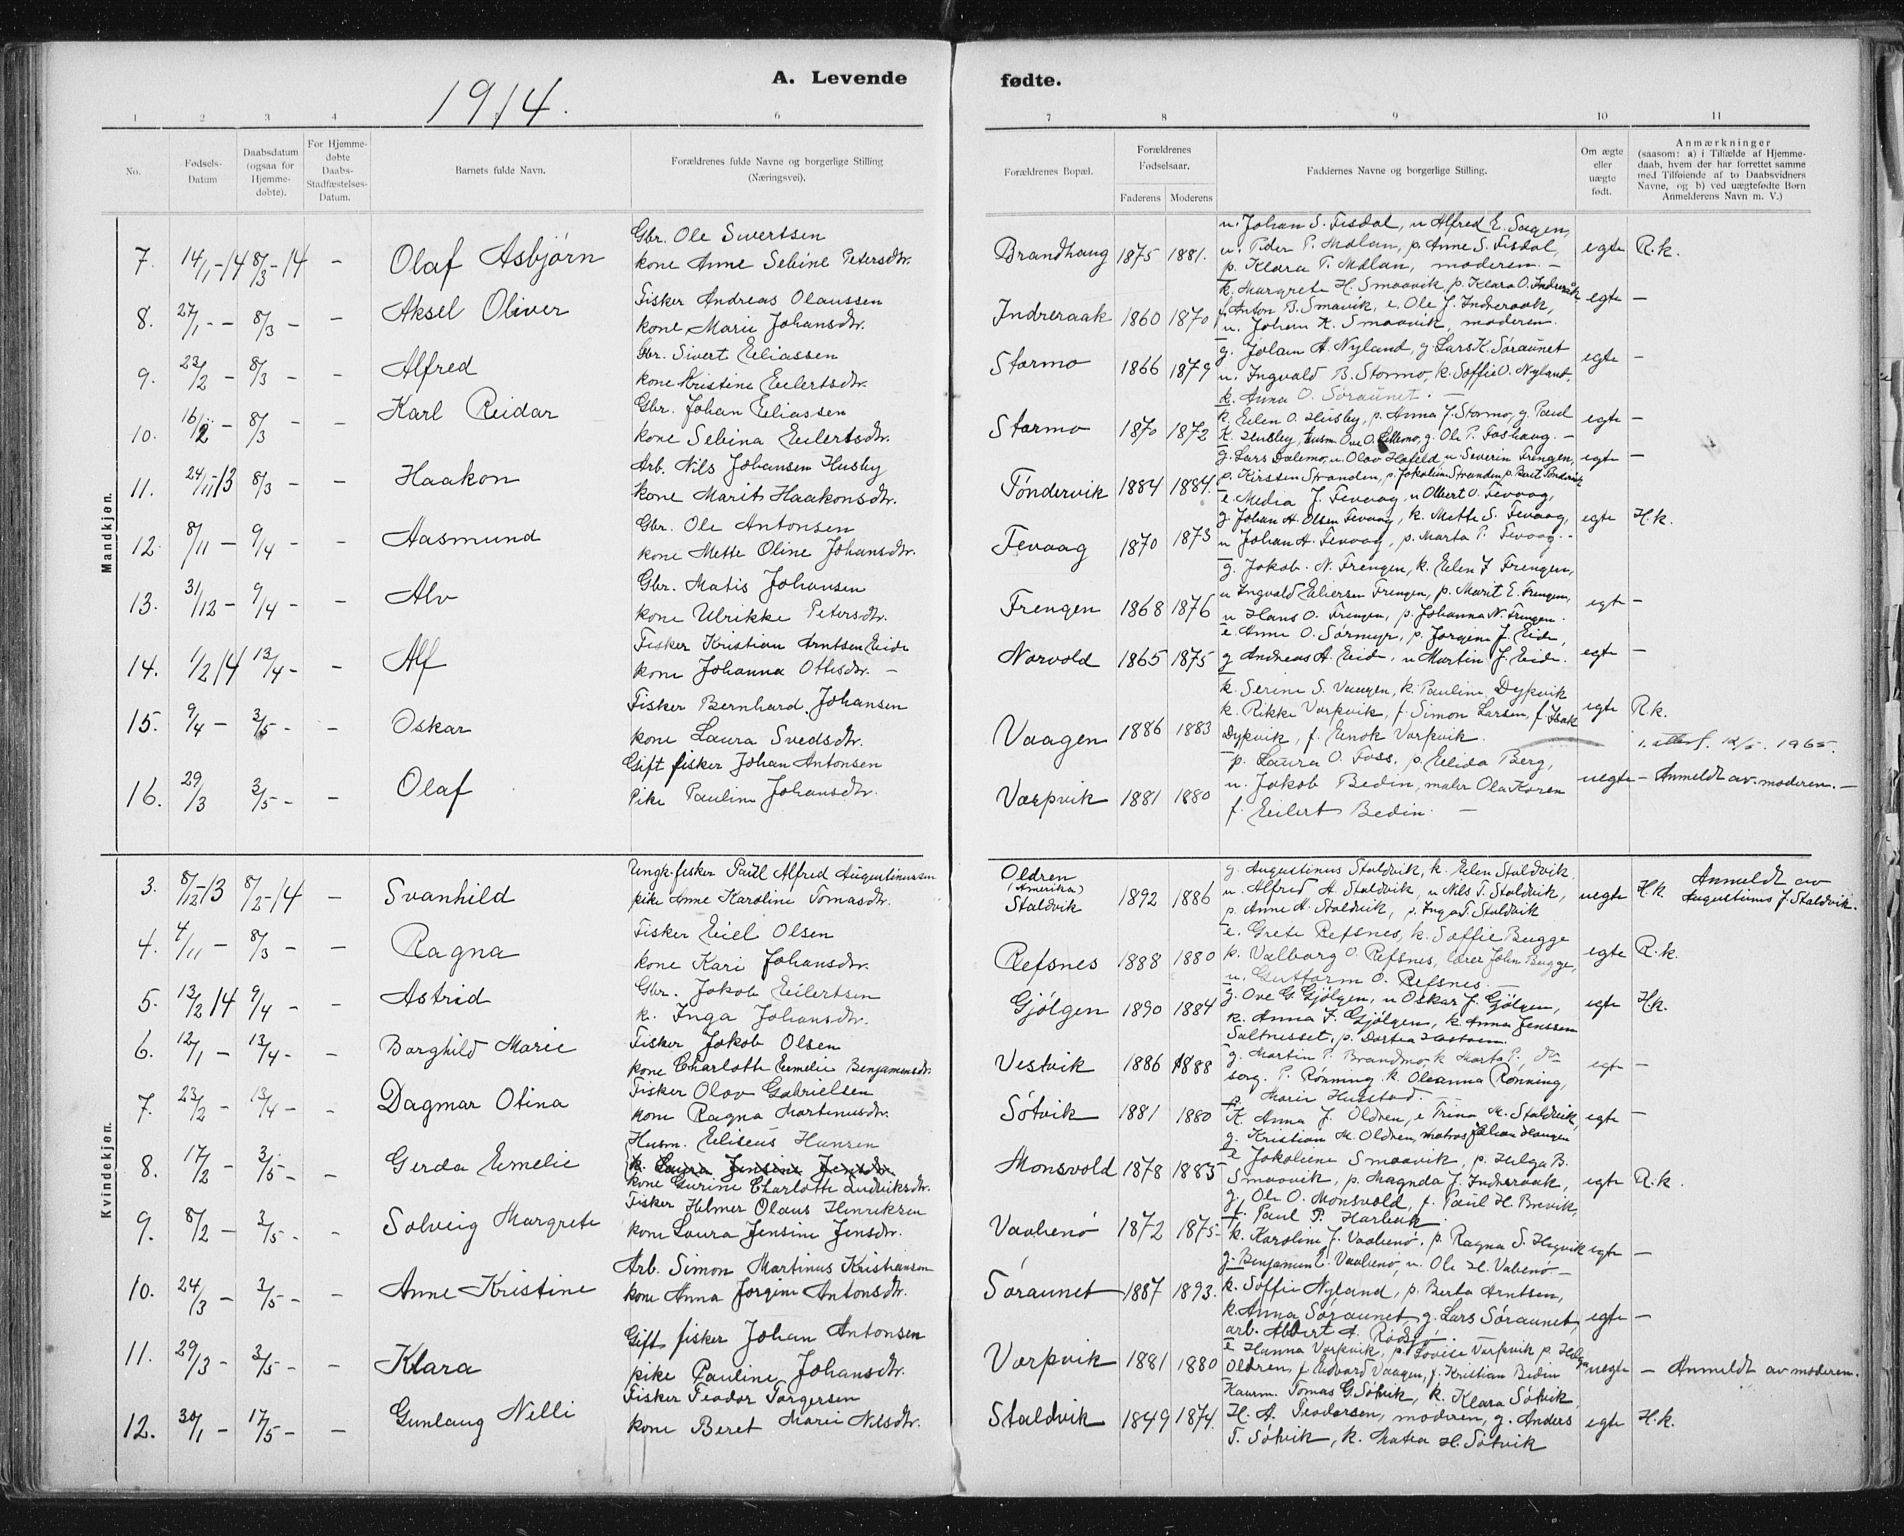 1914.
A. Levende fødte.
1 2 3 4 5 6 7 8 9 10 11
No.
Fødsels-
Datum
Daabsdatum
(ogsaa for
Hjemme-
døbte).
For Hjemme-
døbte
Daabs-
Stadfæstelses-
Datum.
Barnets fulde Navn.
Forældrenes fulde Navne og borgerlige Stilling
(Næringsvei).
Forældrenes Bopæl.
Forældrenes
Fødselsaar.
Faderens Moderens
Faddernes Navne og borgerlige Stilling.
Om ægte
eller
uægte
født.
Anmærkninger
(saasom: a) i Tilfælde af Hjemme-
daab, hvem der har forrettet samme
med Tilføiende af to Daabsvidners
Navne, og b) ved uægtefødte Børn
Anmelderens Navn m. V.)
Mandkjøn.
7. 14/1-14 8/3-14 - Olaf Asbjørn
Gbr. Ole Sivertsen
kone Anne Sebine Petersdtr.
Brandhaug 1875 1881.
u. Johan S. Fisdal, u Alfred E. Sagen,
u. Peder P. Mælan, p. Anne S. Fisdal,
p. Klara P. Mælan, moderen. -
egte R.k.
8. 27/1 - 8/3 - - Aksel Oliver
Fisker Andreas Olaussen
kone Marie Johansdtr.
Indreraak 1860 1870
k. Margrete H. Smaavik, p. Klara O. Indreråk
Anton B. Smavik, e. Ole J. Indreraak,
u. Johan K. Smaavik, moderen.
egte -
9. 23/2 - 8/3 - - Alfred
Gbr. Sivert Eliassen
kone Kristine Eilertsdtr.
Stormo 1866 1879
g. Johan A. Nyland, g Lars K. Søraunet
u. Ingvald B. Stormo, k. Soffie O. Nyland,
k. Anna O. Søraunet. -
egte -
10. 16/2 - 8/3 - - Karl Reidar
Gbr. Johan Eliassen
kone Sebina Eilertsdtr.
Stormo 1870 1872
k. Elen O. Husby, p. Anna J. Stormo, g. Paul
K. Husby, husm. Ove O. Lillemo, g. Ole P. Foshaug. -
egte -
11. 24/11-13 8/3 - - Haakon
Arb. Nils Johansen Husby
kone Marit Haakonsdtr.
Tøndervik 1884 1884.
g. Lars Dalemo, u Olav Hofeld, u Severin Frengen,
p. Kirsten Stranden, p. Jakobine Stranden p. Berit Tøndervik
egte -
12. 8/11 - 9/4 - - Aasmund
Gbr. Ole Antonsen
kone Mette Oline Johansdtr.
Fevaag 1870 1873
e. Media J. Fevaag, u Olbert O. Fevaag,
g. Johan A. Olsen Fevaag, k. Mette S. Fevaag,
u Johan A. Fevaag, p. Marta P. Fevaag. -
egte H.k.
13. 31/12 - 9/4 - - Alv
Gbr. Matis Johansen
kone Ulrikke Petersdtr.
Frengen 1868 1876
g. Jakob N. Frengen, k. Elen J Frengen,
u Ingvald Eliersen Frengen, p. Marit E. Frengen,
u Hans O. Frengen, p. Johanna N. Frengen.
egte -
14. 1/2 14 13/4 - - Alf
Fisker Kristian Arntsen Eide
kone Johanna Ottesdtr. -
Norvold 1865 1875
e. Anne O. Sørmyr, p. Jørgene J. Eide,
g Andreas A. Eide, u Martin J. Eide.
egte -
15. 9/4 - 3/5 - - Oskar
Fisker Bernhard Johansen
kone Laura Svedsdtr.
Vaagen 1886 1883
k. Serine S. Vaagen, k. Pauline Dypvik
k. Rikke Varpvik, f. Simon Larsen, f. Isak
Dypvik, f. Enok Varpvik.
egte R.k.
1. attest. 12/5. 1965.
16. 29/3 3/5 - - Olaf
Gift fisker Johan Antonsen
Pike Pauline Johansdtr.
Værpvik 1881 1880
p. Laura O. Foss, p. Elida Berg,
u. Jakob Bedin, maler Ola Koren
f. Eilert Bedin. -
uegte - Anmeldt av moderen. -
Kvindekjøn.
3. 8/12-13 8/2-14 - Svanhild
Ungk. fisker Paul Alfred Augustinussen
pike Anne Karoline Tomasdtr.
Oldren
(Amerika)
Staldvik
1892 1886
g. Augustinus Staldvik, k. Elen Staldvik.
u. Alfred A Staldvik, u Nils T. Staldvik,
p. Anne A. Staldvik, p. Inga T. Staldvik
uegte H.k. Anmeldt av
Augustinus J. Staldvik.
4. 4/11 - 8/3 - - Ragna
Fisker Eiel Olsen
kone Kari Johansdtr.
Refsnes 1888 1880
e. Grete Refsnes, k. Soffie Bugge
p. Valborg O. Refsnes, lærer John Bugge,
u. Guttorm O. Refsnes. -
egte R.k.
5. 13/2 14 9/4 - - Astrid
Gbr. Jakob Eilertsen
k. Inga Johansdtr.
Gjølgen 1890 1884
g. Ove G. Gjølgen, u Oskar J. Gjølgen,
k. Anna F. Gjølgen, k. Anna Jenssen
Saltnesset, p. Dortea Hostoen.
egte H.k.
6. 12/1 - 13/4 - - Borghild Marie
Fisker Jakob Olsen
kone Charlotte Emelie Benjamensdtr.
Vestvik 1886 1888
g. Martin P. Brandmo, k Marta P. do
sorg. P. Rønning, k. Oleanna Rønning,
p. Marie Husstad. -
egte -
7. 23/2 - 13/4 - - Dagmar Otina
Fisker Olav Gabrielsen
kone Ragna Martinusdtr.
Søtvik 1881 1880
K. Anna J. Oldren, e Trina M. Staldvik,
g. Kristian M. Oldren, matros Johan Haugen
egte -
8. 17/2 - 3/5 - - Gerda Emelie
Husm. Eliseus Hansen
k. Laura Jensine Jensdtr.
kone Gurine Charlotte Ludviksdtr.
Monsvold 1878 1885
e Jakobine Smaavik, p. Helga B.
Smaavik, p. Magnda J. Indreraak,
g. Ole O. Monsvold, f. Paul H. Brevik,
f. Paul P. Harbak.
egte R.k.
9. 8/2 - 3/5 - - Solveig Margrete
Fisker Helmer Olaus Henriksen
kone Laura Jensine Jensdtr.
Vaabenø 1872 1875-
k. Karoline J. Vaabenø, p. Ragna S. Hegvik
g. Benjamin E. Vaabenø, u. Ole H. Vabenø -
egte -
10. 24/3 - 3/5 - - Anne Kristine
Arb. Simon Martinus Kristiansen
kone Anna Jørgine Antonsdtr.
Søraunet 1887 1893.
k. Soffie Nyland, p. Berta Arntsen,
k. Anna Søraunet, g. Lars Søraunet,
arb. Albert A. Rødsjø
egte -
11. 29/3 - 3/5 - - Klara
Gift fisker Johan Antonsen
pike Pauline Johansdtr.
Værpvik 1881 1880
e Hanna Varpvik, p. Lovise Varpvik p. Helga
Oldren, f. Edvard Vaagen, f. Kristian Bedin
uegte - Anmeldt av moderen.
12. 30/1 - 17/5 - - Gunlaug Nelli
Fisker Teodor Torgersen
kone Beret Marie Nilsdtr.
Staldvik 1849 1874.
Kaarm. Tomas G. Søtvik, k. Klara Søtvik,
H. A. Teodorsen, moderen, g. Anders
T. Søtvik, k. Matea H. Søtvik
egte H.k.